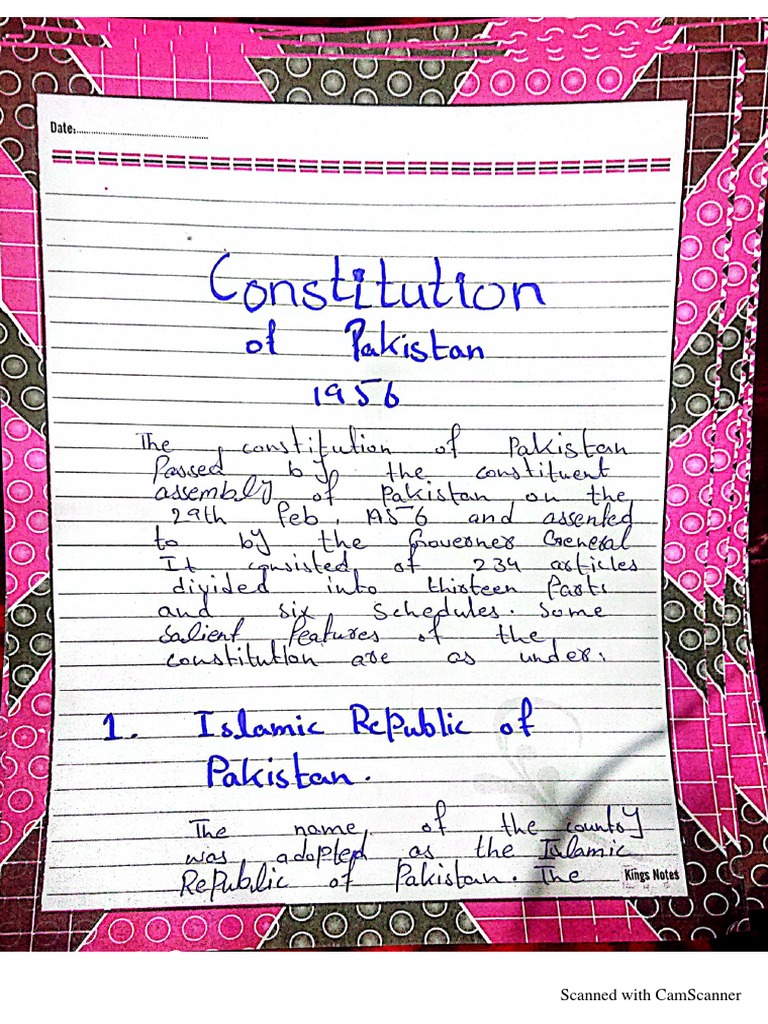 Date:
Constitution
of Pakistan
1956
The constitution of Pakistan
Passed by the constituent
assembly of Pakistan on the
29th Feb, 1956 and assented
to by the Governer General
It consisted of 234 articles
divided into thirteen Parts
and six schedules. Some
salient features of the
constitution are as under:
1. Islamic Republic of
Pakistan.
The name of the country
was adopted as the Islamic
Republic of Pakistan. The
Kings Notes
Scanned with CamScanner